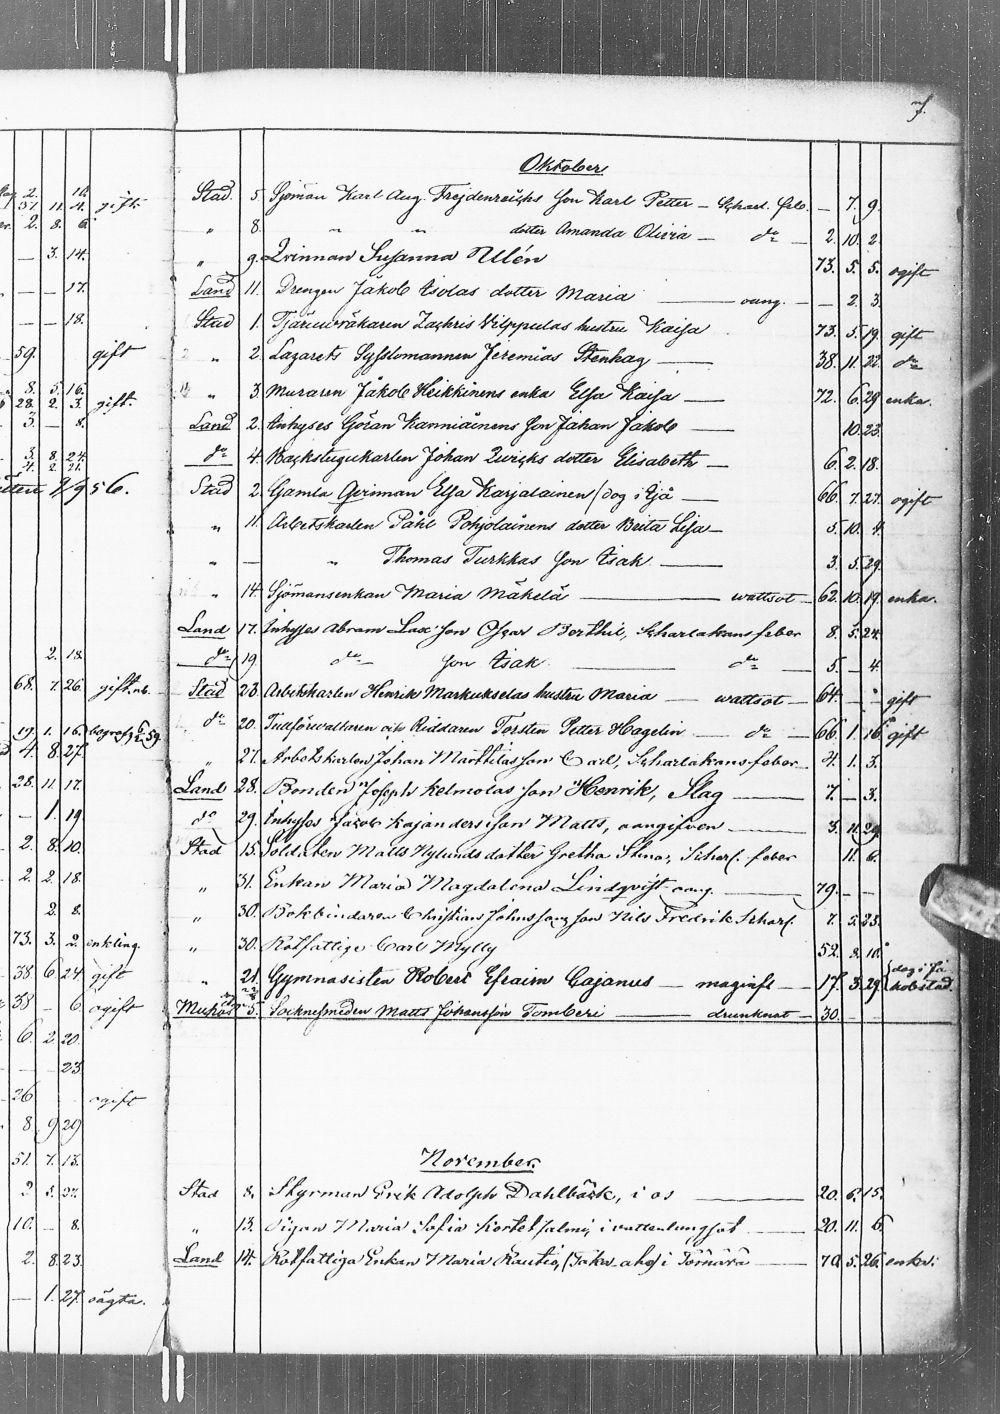 7.
Oktober
Stad. 5. Sjöman Karl Aug. Frejdenreichs son Karl Petter — Scharl. feb. — 7. 9.
" 8. " " dotter Amanda Olivia — do — 2. 10. 2.
" 9. Qvinnan Susanna Ulén 73. 5. 5. ogift
Land 11. Drengen Jakob Isolas dotter Maria — oang. — — 2. 3.
Stad 1. Zachris Vilppulas hustru Kaisa 73. 5. 19. gift
" 2. Lazarets Sysslomannen Jeremias Stenhag — 38. 11. 22. do
" 3. Muraren Jakob Heikkinens enka Elsa Kaisa — 72. 6. 29 enka.
Land 2. Inhyses Göran Kanniainens son Johan Jakob — 10. 23.
do 4. Backstugukarlen Johan Qvicks dotter Elisabeth — 6. 2. 18.
Stad 2. Gamla Qvinnan Elsa Karjalainen (dog i Ijå — 66. 7. 27. ogift
" 11. Arbetskarlen Påhl Pohjolainens dotter Brita Lisa — 5. 10. 4.
" — " Thomas Turkkas son Isak — 3. 5. 29.
" 14. Sjömansenkan Maria Mäkelä — wattsot — 62. 10. 19. enka.
Land 17. Inhyses Abram Lax son Oscar Berthil, Scharlakansfeber 8. 5. 24.
do 19 do son Isak — do — 5. — 4.
Stad 23. Arbetskarlen Henrik Markukselas hustru Maria — wattsot — 64. - - gift
do 20. Tullförvaltaren och Riddaren Torsten Petter Hagelin — do — 66. 1. 16. gift
" 27. Arbetskarlen Johan Marttilas son Carl, Scharlakansfeber 4. 1. 3.
Land 28. Bonden Joseph Kelmolas son Henrik, Slag — 7. — 3.
do 29. Inhyses Jacob Kajanders son Matts, oangifven — 3. 11. 29.
Stad 15. Soldaten Matts Nylunds dotter Gretha Stina, Scharl. feber 11. 6.
" 31. Enkan Maria Magdalena Lindqvist oang. — 79. — —
" 30. Bokbindaren Christian Johnssons son Nils Fredrik Scharl. 7. 5. 23.
" 30. Rotfattige Carl Mylly 52. 8. 10.
" 21. Gymnasisten Robert Efraim Cajanus — maginfl — 17. 3. 29. dog i Ja kobstad.
Muhos 5. Socknesmeden Matts Johansson Tomberi — drunknat — 30. - -
November.
Stad 8. Styrman Erik Adolph Dahlbäck, i os — 20. 6. 15.
" 13. Pigan Maria Sofia Kortetsalmi, i vattenlungsot — 20. 11. 6
Land 14. Rotfattiga Enkan Maria Rautio, i Törmävä — 70. 5. 26. enka.
gift.
gift
gift.
56.
gift
ogift
enkling.
gift
ogift
oägta.